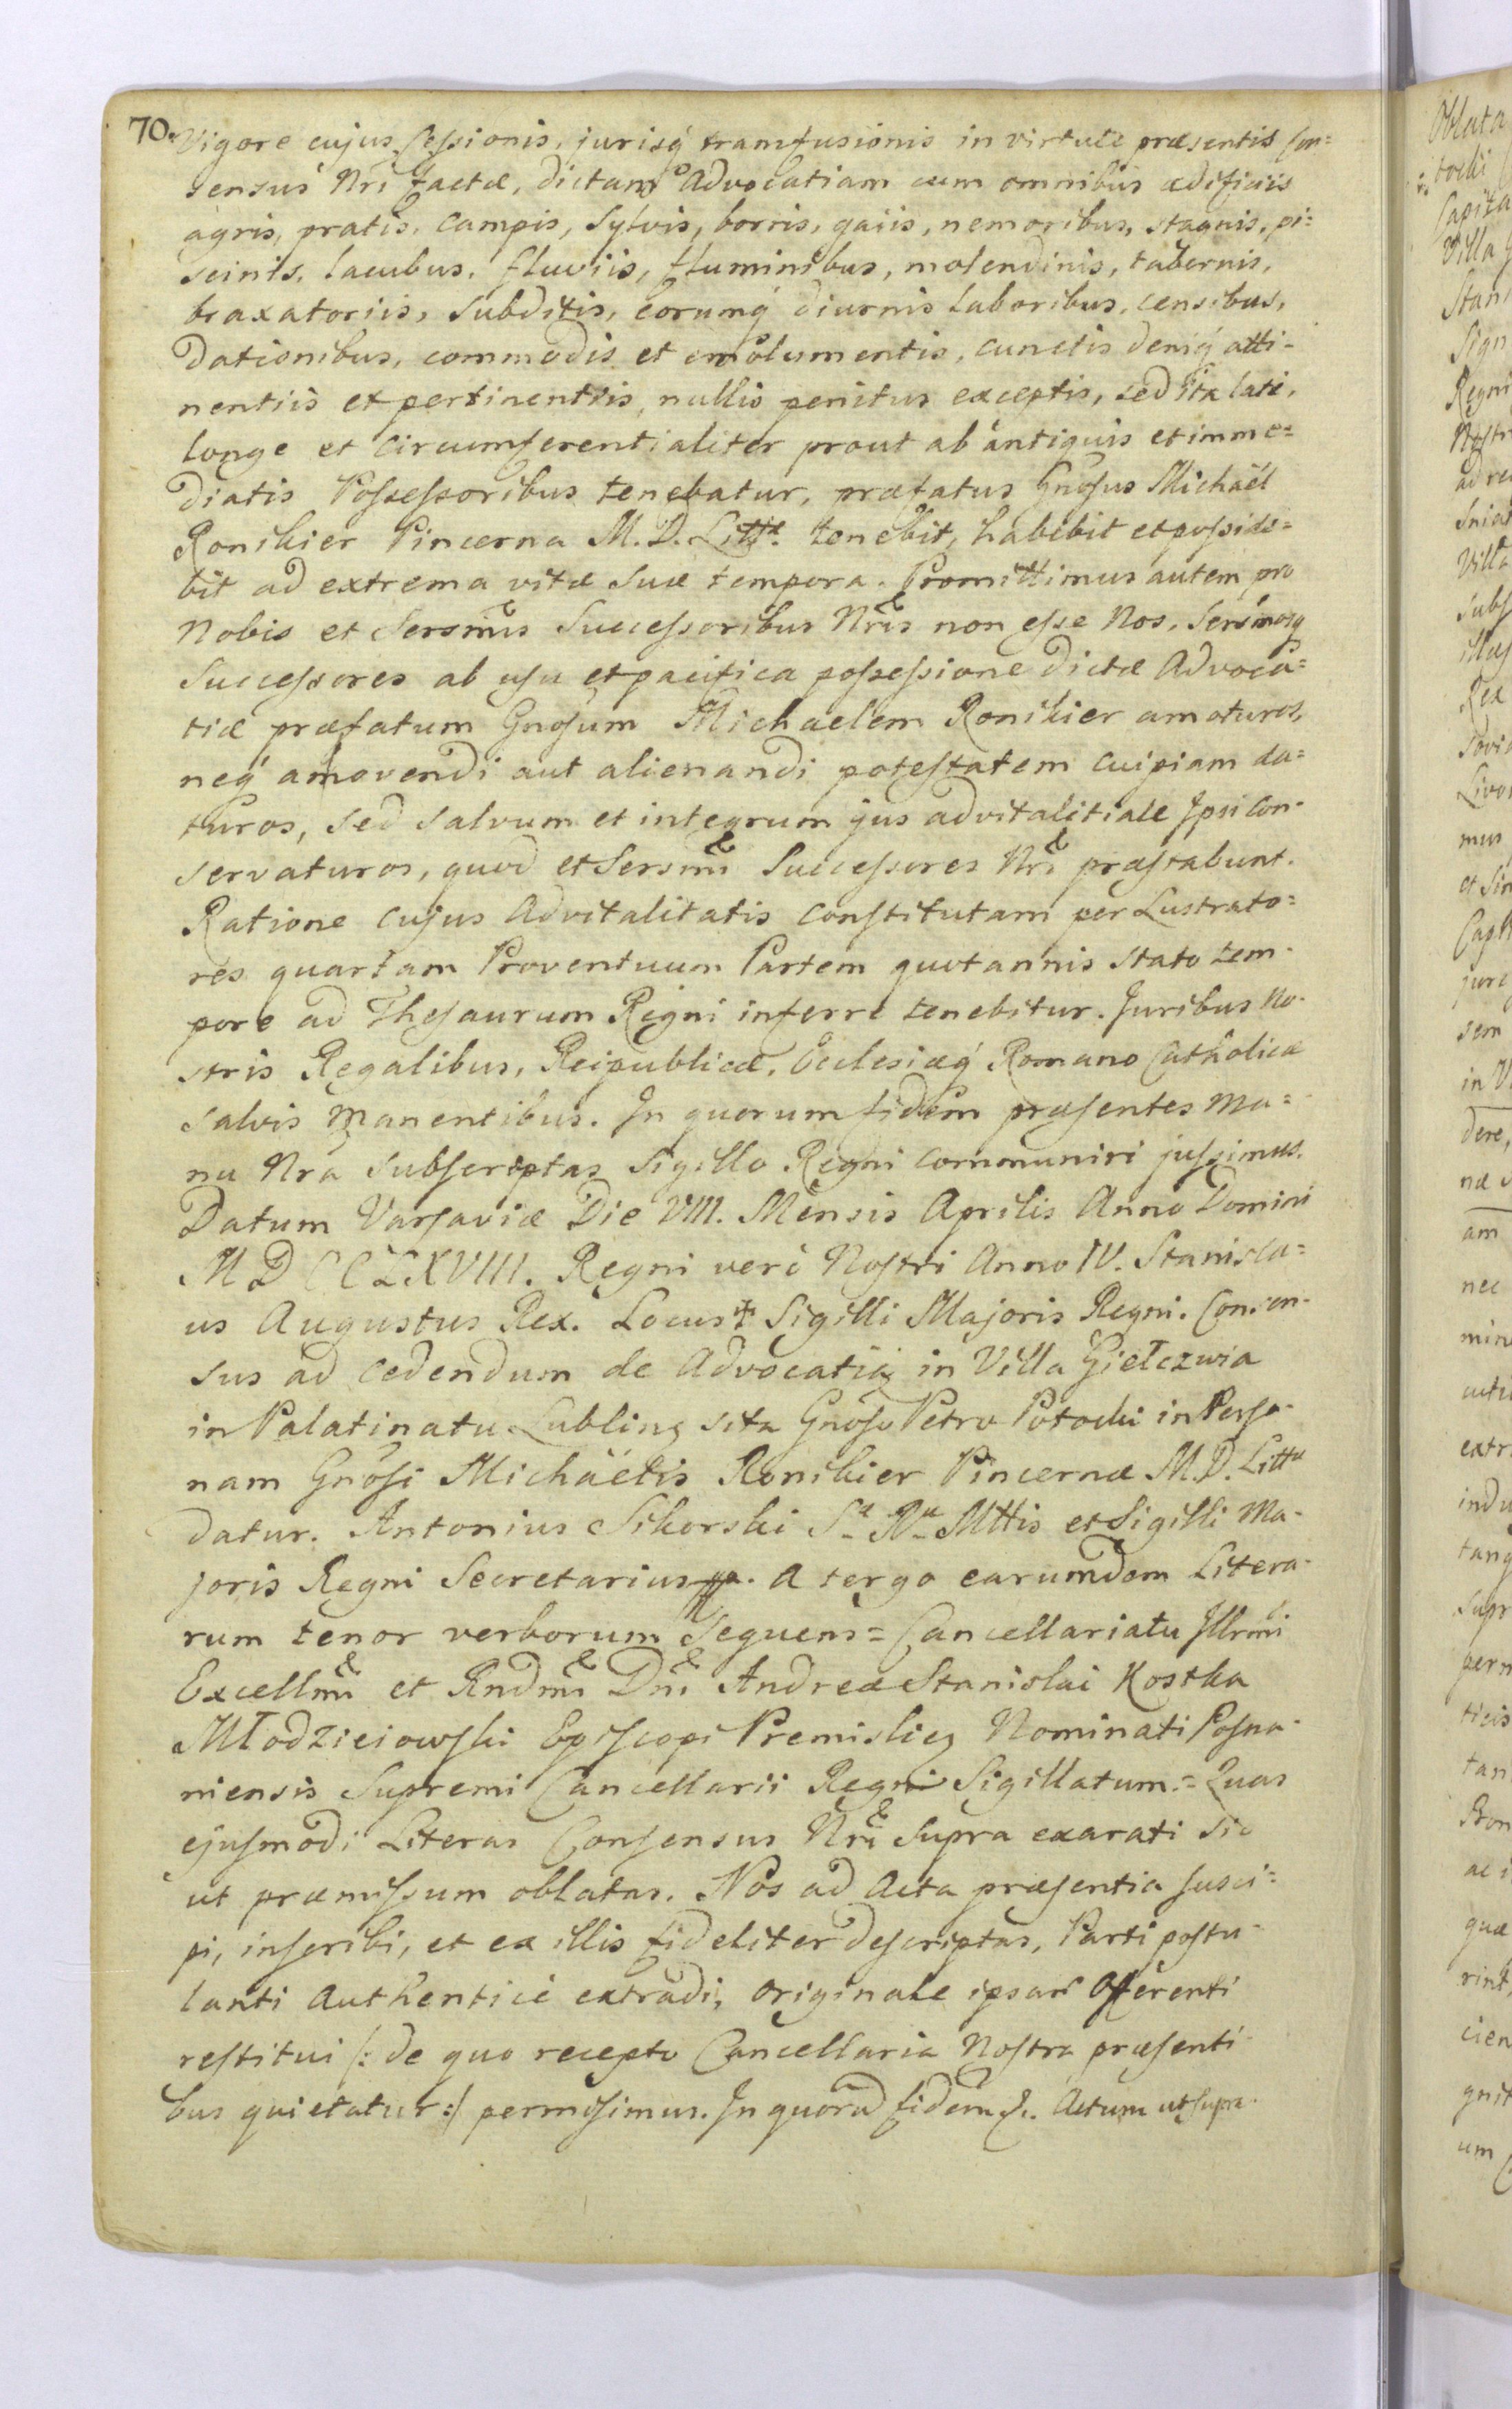 70. Vigore cujus Cessionis, jurisq́ transfusionis in virtute præsentis Con=
sensus Nri factæ, dictam Advocatiam cum omnibus ædificiis
agris, pratis, campis, Sylvis, borris, gaiis, nemoribus, stagnis, pi=
scinis, lacubus, fluviis, fluminibus, molendinis, tabernis,
braxatoriis, Subditis, eorumq́ diurnis laboribus, censibus,
dationibus, commodis et emolumentis, cunctis deniq́ atti-
nentiis et pertinentiis, nullis penitus exceptis, sed ita laté,
longe et circumferentialiter prout ab antiquis et imme=
diatis Possessoribus tenebatur, præfatus Gnosus Michaël
Ronikier Pincerna M. D. Littæ. tenebit, habebit et posside=
bit ad extrema vitæ suæ tempora. Promittimus autem pro
Nobis et Sersmis Successoribus Nris non esse Nos, Sersmosq
Successores ab usu et pacifica possessione dictæ Advoca=
tiæ præfatum Gnosum Michaelem Ronikier amoturos,
neq́ amovendi aut alienandi potestatem cuipiam da=
turos, sed salvum et integrum jus advitalitiale Ipsi Con-
servaturos, quod et Sersmi Successores Nri præstabunt.
Ratione cujus Advitalitatis constitutam per Lustrato=
res quartam Proventuum Partem quotannis stato tem-
pore ad Thesaurum Regni inferre tenebitur. Juribus No-
stris Regalibus, Reipublicæ, Ecclesiæq́ Romano Catholicæ
salvis manentibus. In quorum fidem præsentes Ma=
nu Nra subscriptas Sigillo Regni communiri jussimus.
Datum Varsaviæ Die VIII. Mensis Aprilis Anno Domini
MDCCLXVIII. Regni veré Nostri Anno IV. Stanisla=
us Augustus Rex. Locus ✝ Sigilli Majoris Regni. Consen-
sus ad cedendum de Advocatia in Villa Giełczwia
in Palatinatu Lublinę sita Gnoso Petro Potocki in Perso-
nam Gnosi Michaëlis Ronikier Pincernæ M. D. Littæ
datur. Antonius Sikorski Sæ Ræ Mttis et Sigilli Ma-
joris Regni Secretarius. A tergo earumdem Litera-
rum tenor verborum sequens = Cancellariatu Illrmi
Excellmi et Rndmi Dni Andreæ Stanislai Kostka
Młodzieiowski Episcopi Premislieę Nominati Posna-
niensis Supremi Cancellarii Regni Sigillatum. = Quas
ejusmodi Literas Consensus Nri supra exarati sic
ut præmissum oblatas. Nos ad Acta præsentia susci=
pi, inscribi, et ex illis fideliter descriptas, Parti postu-
lanti authenticé extradi, originale ipsar Offerenti
restitui /: de quo recepto Cancellaria Nostra præsenti
bus quietatur :/ permisimus. In quorū fidem &. Actum ut supra.
Oblata
tocki
Capita
Villa
Stani
Sign
Regni
Nostri
ad re
Snia
Villa
Subs
Rex
Livo
mus
et Sin
Capt
jure
sem
in V
dere,
næ
am
nec
min
extr
indu
tang
supr
perm
ticis
tan
ac i
quæ
rint,
cien
gnit
um